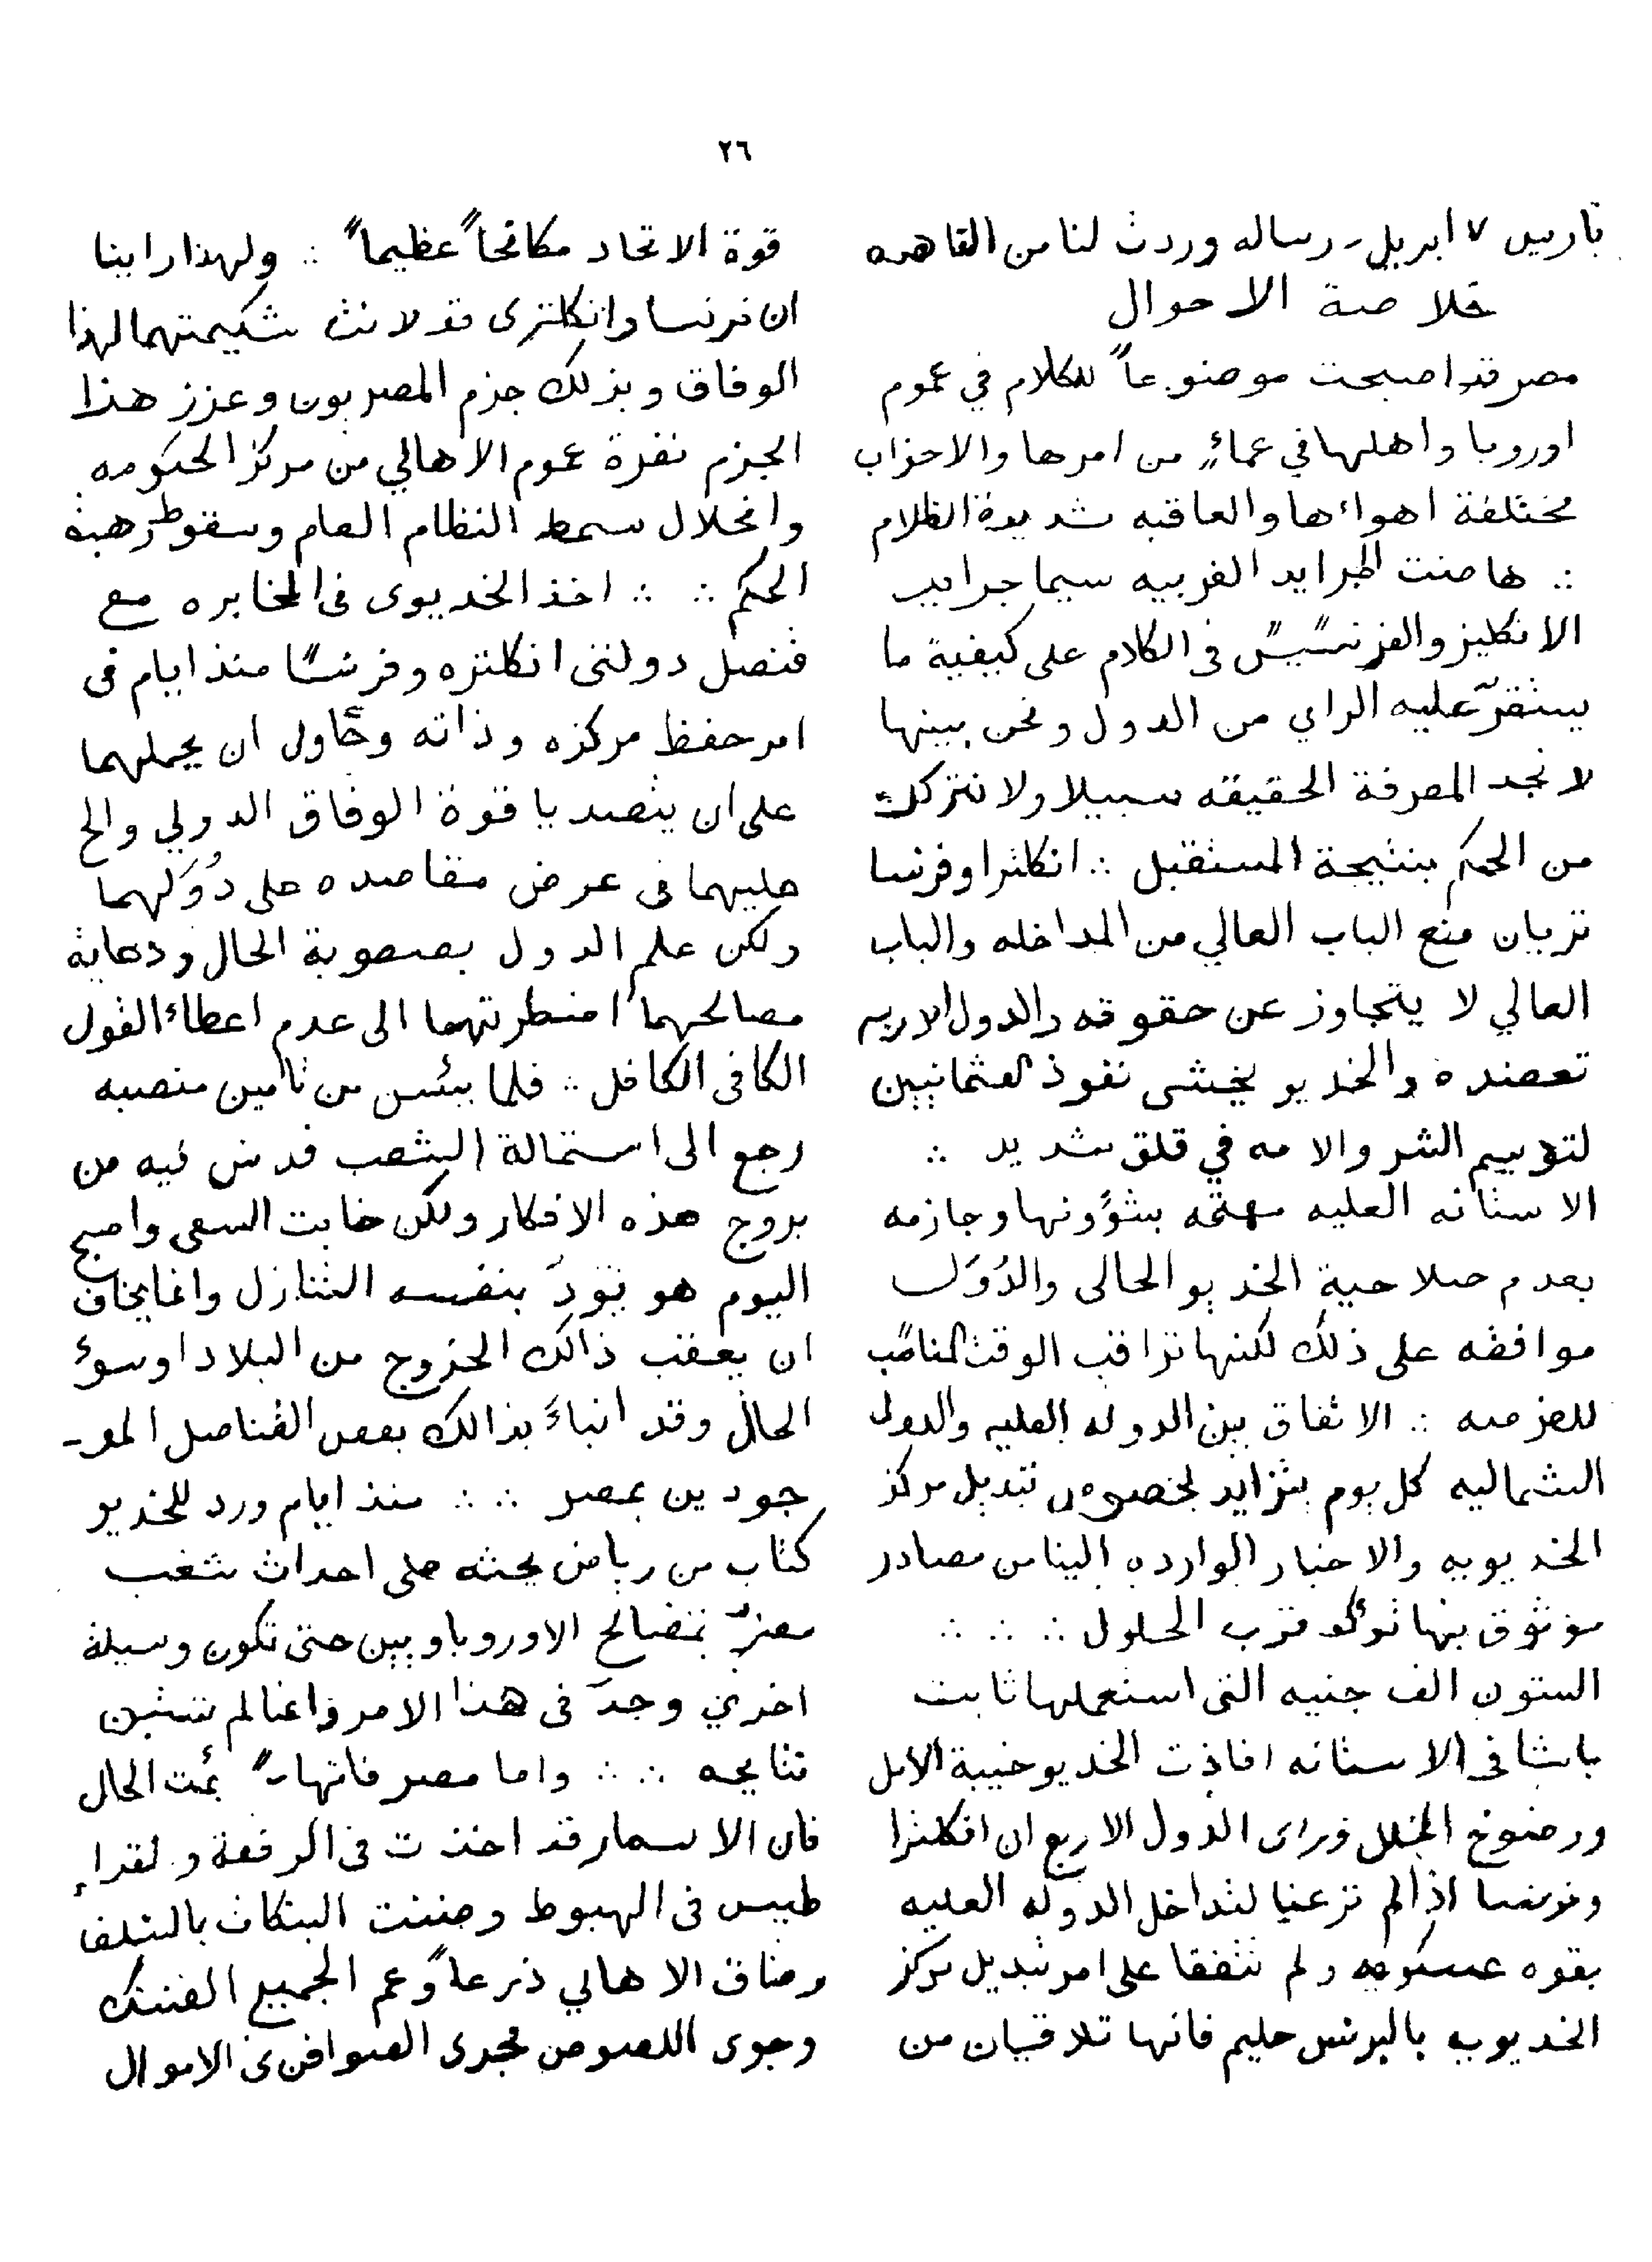 ٢٦
باريس ٧ ابريل - رساله وردت لنا من القاهره
خلاصة الاحوال
مصر قد اصبحت موضوعاً للكلام في عموم
اوروبا واهلها في عماءٍ من امرها والاحزاب
مختلفة اهواءها والعاقبه شديدة الظلام
∴ هاضت الجرايد الغربيه سيما جرايد
الانكليز والفرنسيس فى الكلام على كيفية ما
يستقرّ عليه الراي من الدول ونحن بينها
لا نجد لمعرفة الحقيقه سبيلا ولا نتركك
من الحكم بنتيجة المستقبل ∴ انكلترا وفرنسا
تريان منع الباب العالي من المداخله والباب
العالي لا يتجاوز عن حقوقه والدول الاربع
تعضده والخديو يخشى نفوذ العثمانيين
لتوسيم الشر والامه في قلق شديد ∴
الاستانه العليه مهتمّه بشؤونها وجازمه
بعدم صلاحية الخديو الحالى والدُوَل
موافقه على ذلك لكنها تراقب الوقت المناسب
للعزمه ∴ الاتفاق بين الدوله العليه والدول
الشماليه كل يوم يتزايد بخصوص تبديل مركز
الخديويه والاخبار الوارده الينا من مصادر
موثوق بها تؤكد قرب الحلول ∴ ∴ ∴
الستون الف جنيه التى استعملها ثابت
باشا فى الاستانه افاذت الخديو خيبة الامل
ورضوخ الخلل وراى الدول الاربع ان انكلترا
وفرنسا اذا لم ترعنيا لتداخل الدوله العليه
بقوه عسكريه ولم تتفقا على امر تبديل مركز
الخديويه بالبرنس حليم فانها تلاقيان من
قوة الاتحاد مكافحاً عظيماً ∴ ولهذا راينا
ان فرنسا وانكلترى قد لانت شكيمتهما لهذا
الوفاق وبذلك جزم المصريون وعزز هذا
الجزم نفرة عموم الاهالي من مركز الحكومه
وانحلال سمط النظام العام وسقوط رهبة
الحكم ∴ ∴ اخذ الخديوى فى المخابره مع
قنصل دولتى انكلتره وفرنسا منذ ايام فى
امر حفظ مركزه وذاته وحاول ان يحملهما
على ان يتصديا قوة الوفاق الدولي والح
عليهما فى عرض مقاصده على دُوَلهما
ولكن علم الدول بصعوبة الحال ورعاية
مصالحهما اضطرتهما الى عدم اعطاء القول
الكافى الكافل ∴ فلما يئس من تامين منصبه
رجع الى استمالة الشعب فدس فيه من
يروج هذه الافكار ولكن خابت السعى واصبح
اليوم هو يودّ بنفسه التنازل وانما يخاف
ان يعقب ذالك الخروج من البلاد او سوء
الحال وقد انباءَ بذالك بعض القناصل المو-
جودين بمصر ∴ ∴ منذ ايام ورد للخديو
كتاب من رياض يحثه على احداث شغب
مضرّ بمصالح الاوروباويين حتى تكون وسيلة
اخري وجدّ فى هذا الامر وانما لم تتبين
نتايجه ∴ ∴ واما مصر فانها بئت الحال
فان الاسعار قد اخذت فى الرفعة ولقراء
طيس فى الهبوط وضنت البنكات بالسلف
وضاق الاهالي ذرعاً وعم الجميع الضنك
وجرى اللصوص مجرى الصوافن فى الاموال